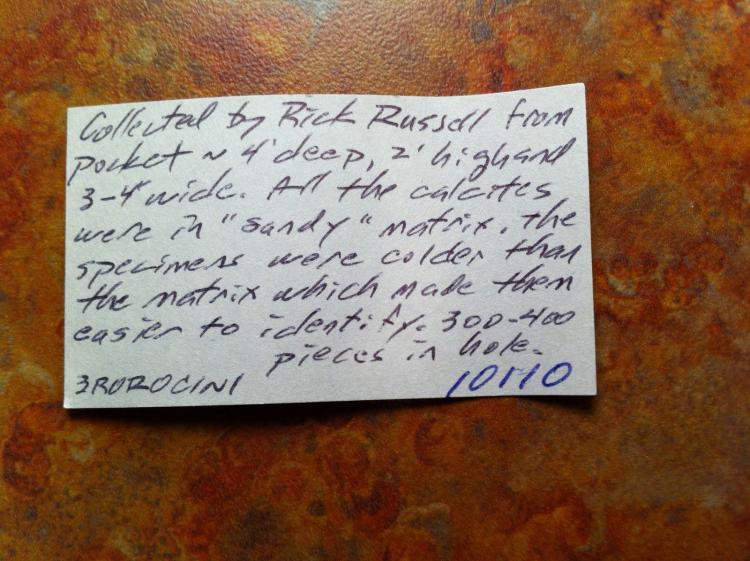 Collected by Rick Russell from
pocket ~ 4' deep, 2' high and
3-4' wide. All the calcites
were in "sandy" matrix. The
specimens were colder than
the matrix which made them
easier to identify. 300-400
pieces in hole.